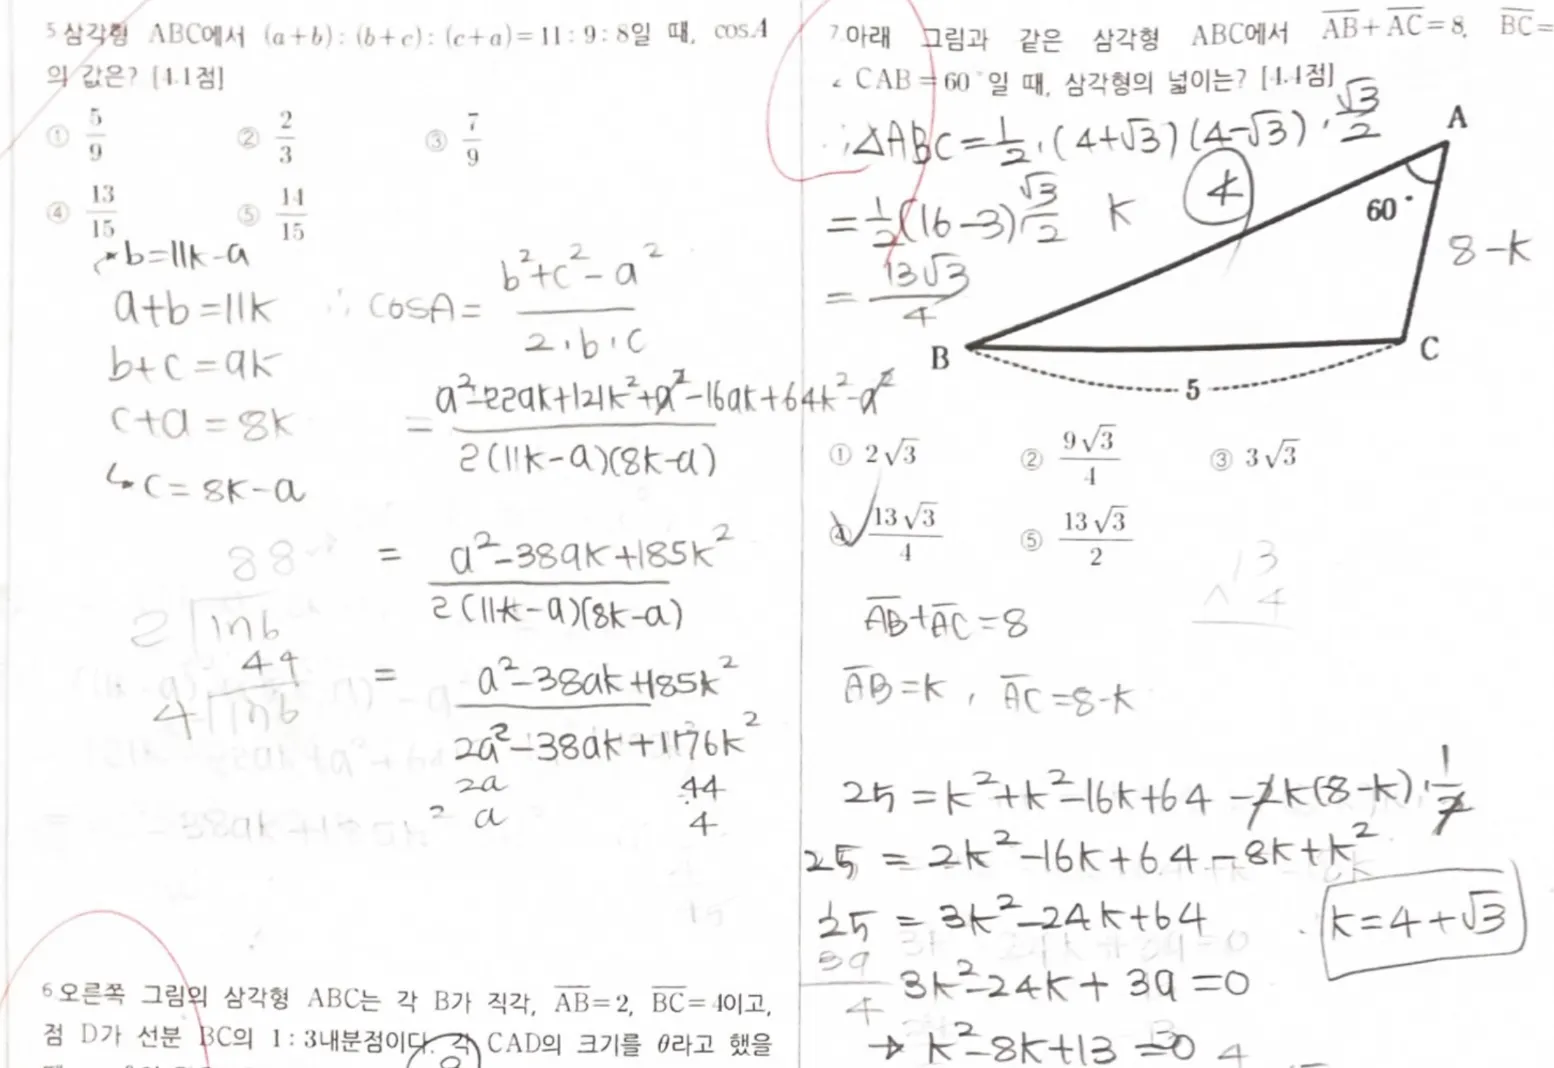 5 삼각형 ABC에서 (a+b) : (b+c) : (c+a) = 11 : 9 : 8일 때, cosA
의 값은? [4.1점]
① 5/9 ② 2/3 ③ 7/9
④ 13/15 ⑤ 14/15
b=11k-a
a+b=11k
b+c=9k
c+a=8k
↳ c=8k-a
∴ cosA= (b²+c²-a²)/(2·b·c)
= (a²-22ak+121k²+a²-16ak+64k²-a²)/(2(11k-a)(8k-a))
= (a²-38ak+185k²)/(2(11k-a)(8k-a))
= (a²-38ak+185k²)/(2a²-38ak+176k²)
2a 44
a 4
88
2
44
4
6 오른쪽 그림의 삼각형 ABC는 각 B가 직각, AB=2, BC=4이고,
점 D가 선분 BC의 1 : 3내분점이다. 각 CAD의 크기를 θ라고 했을
7 아래 그림과 같은 삼각형 ABC에서 AB+AC=8, BC=
CAB=60°일 때, 삼각형의 넓이는? [4.4점]
∴△ABC=1/2·(4+√3)(4-√3)·√3/2
=1/2(16-3)√3/2 k
=13√3/4
4
A
60°
8-k
B
C
5
① 2√3 ② 9√3/4 ③ 3√3
④ 13√3/4 ⑤ 13√3/2
13
4
AB+AC=8
AB=k, AC=8-k
25=k²+k²-16k+64-2k(8-k)·1/2
25=2k²-16k+64-8k+k²
25=3k²-24k+64
39
3k²-24k+39=0
→ k²-8k+13=0
k=4+√3